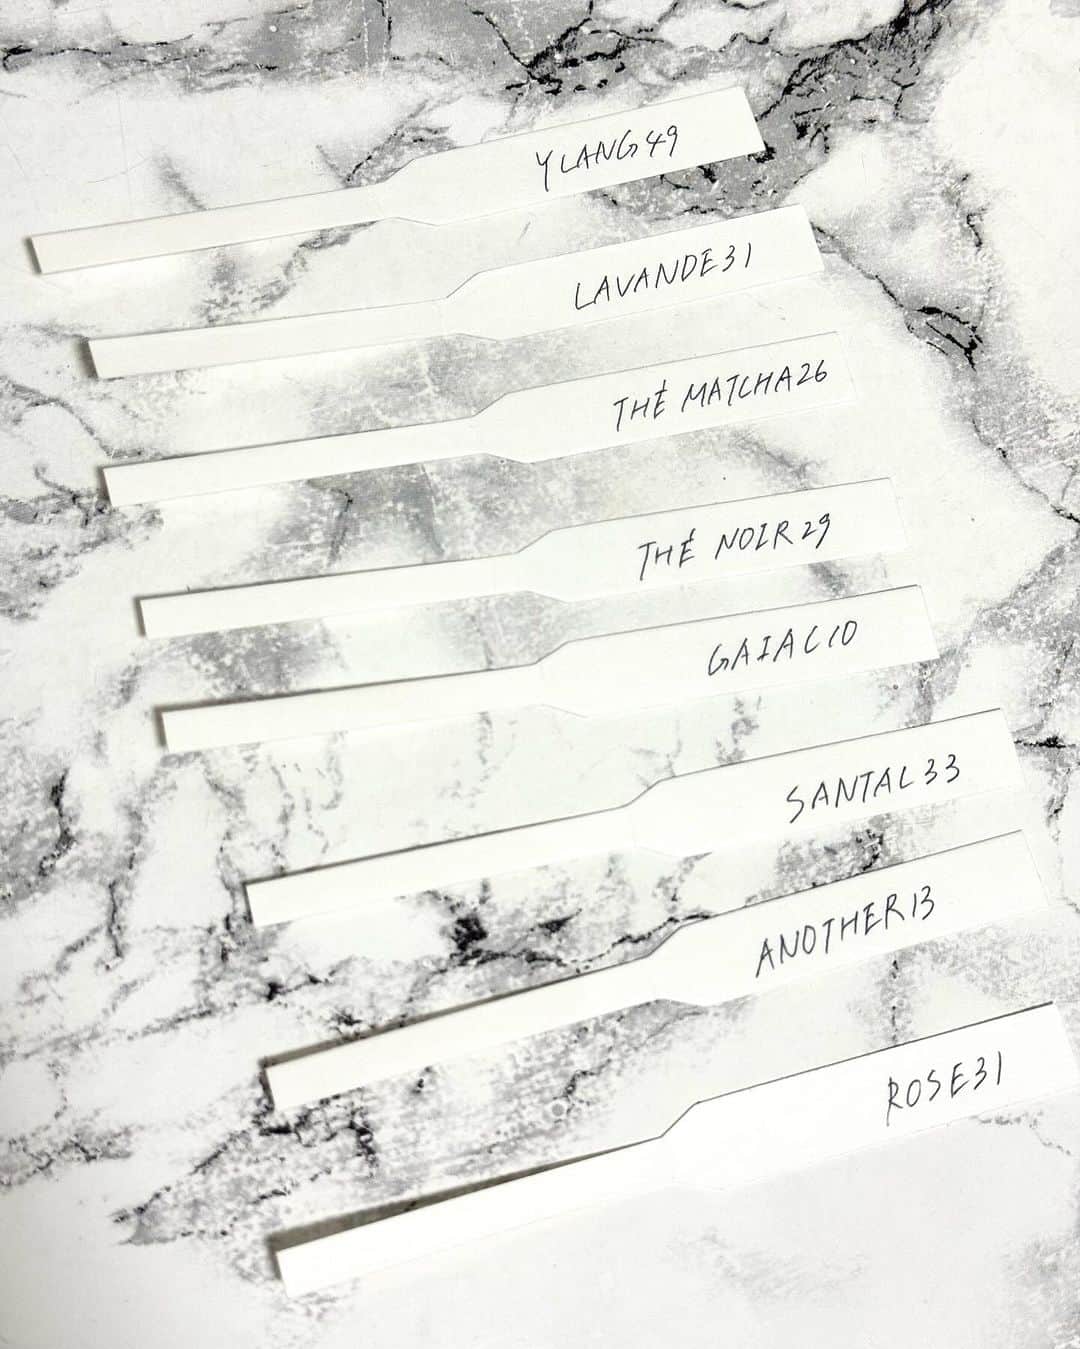 YLANG49
LAVANDE31
THÉ MATCHA26
THÉ NOIR29
GAIAC10
SANTAL33
ANOTHER13
ROSE31